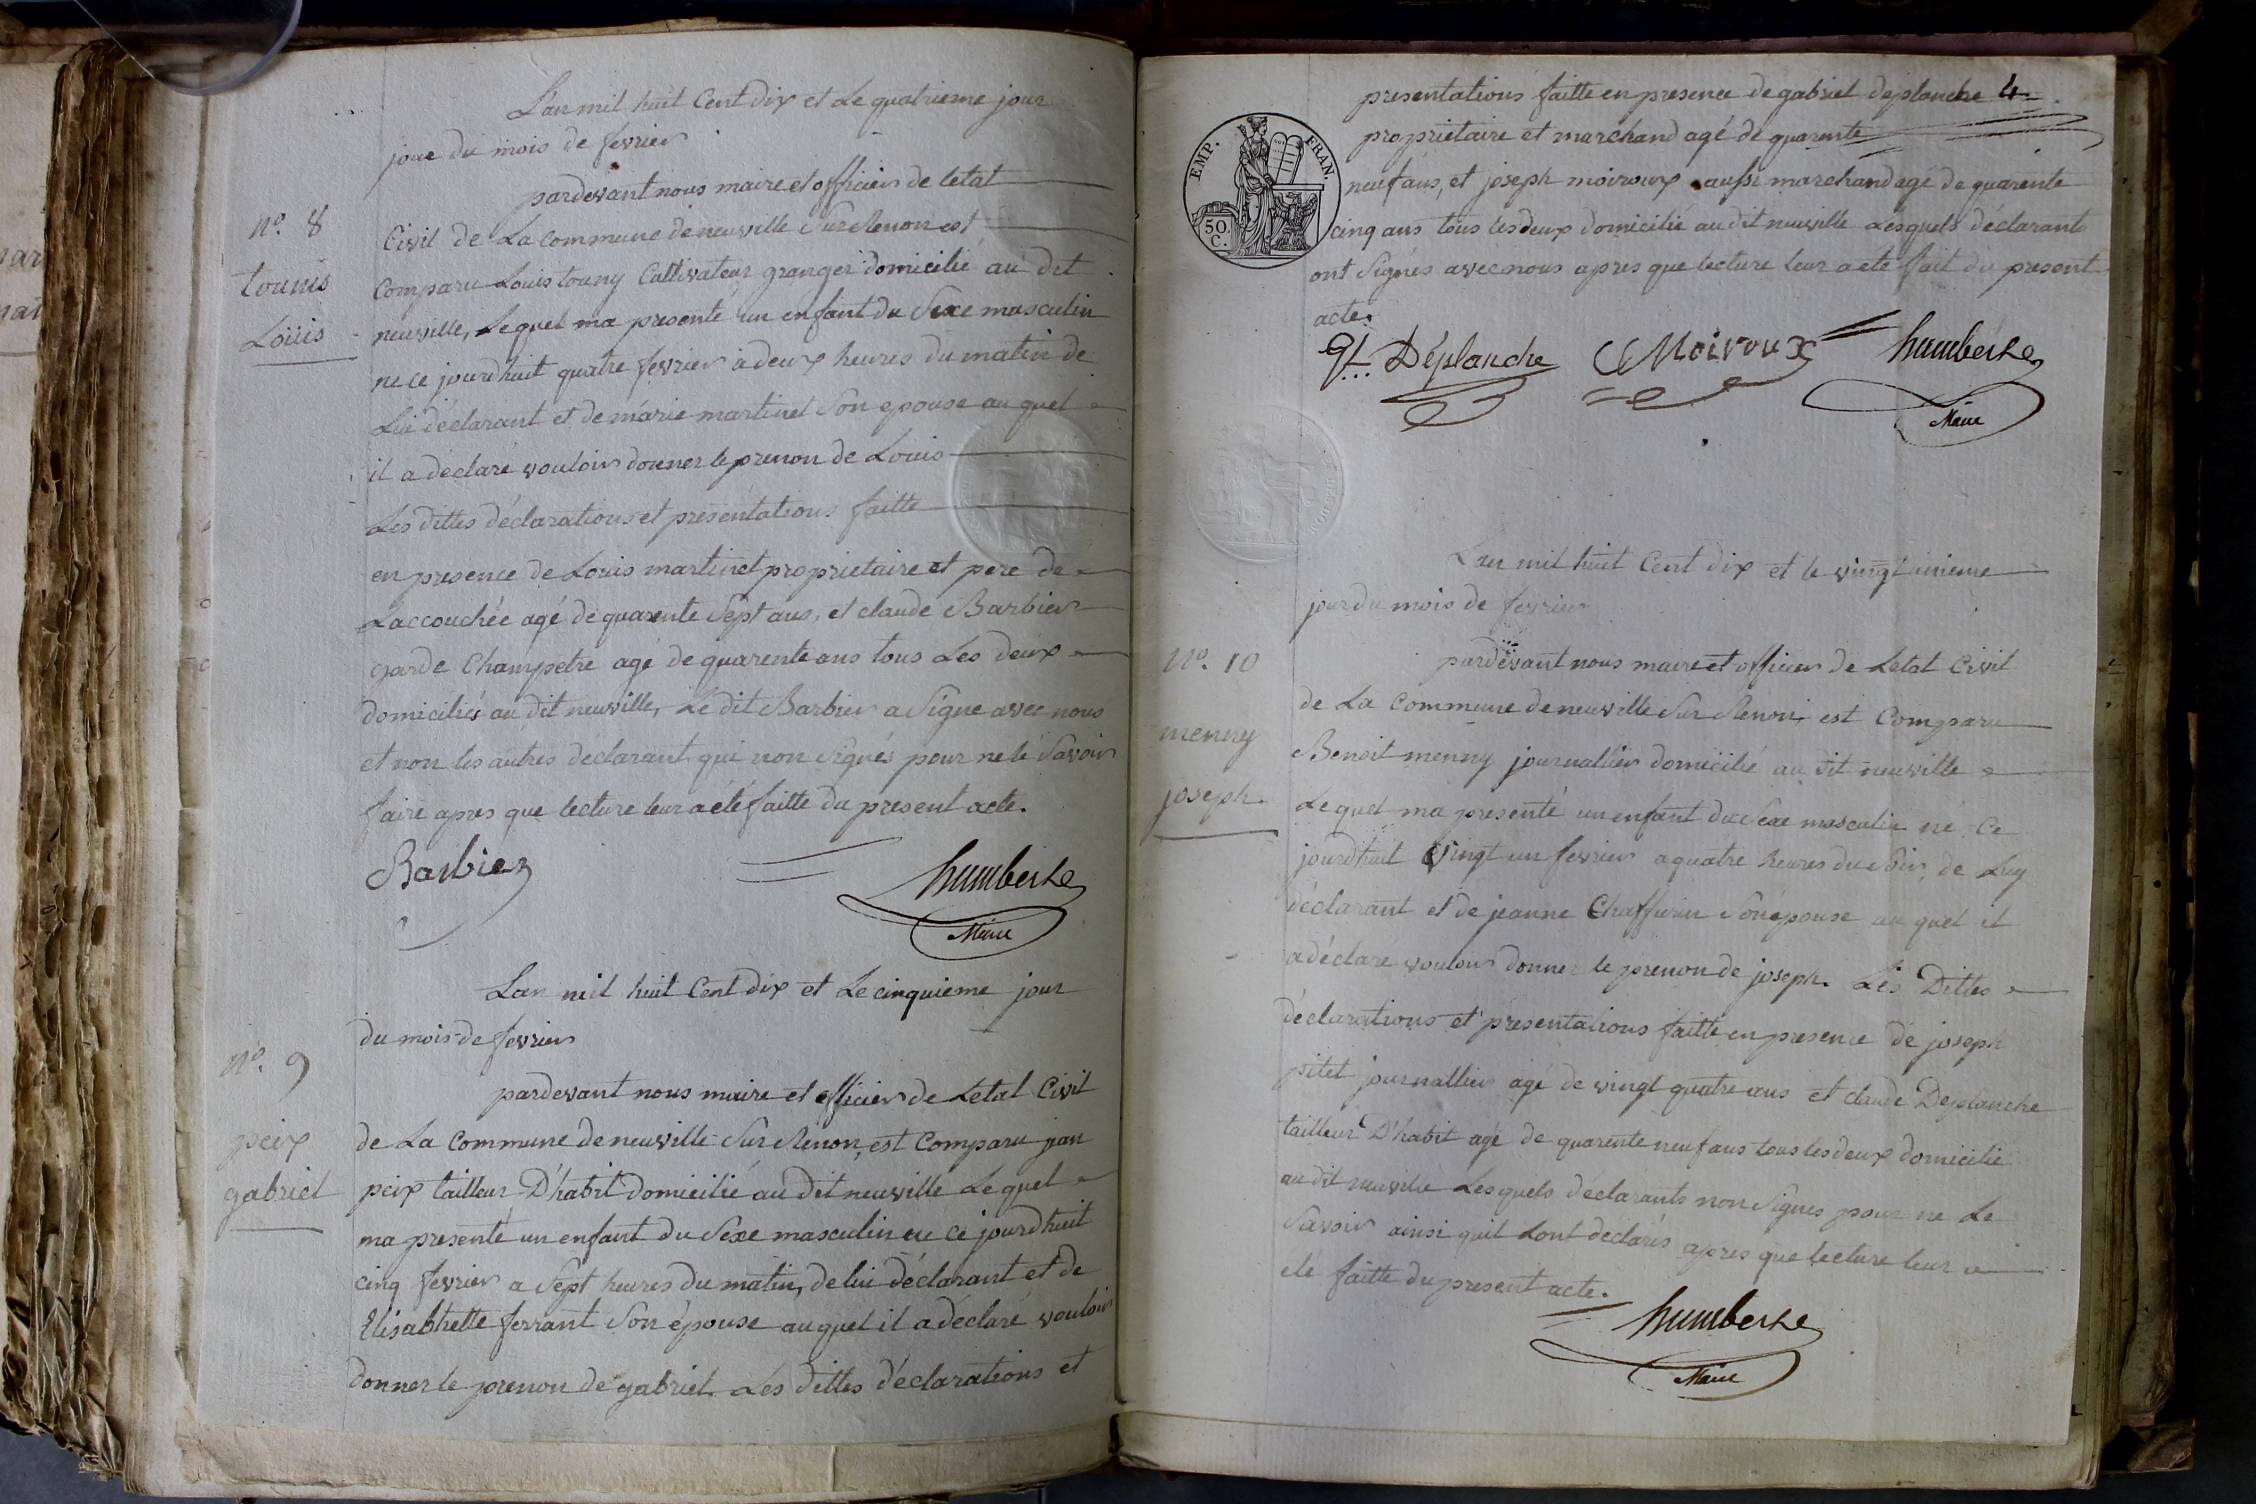 L'an mil huit Cent dix et Le quatrieme jour
jour du mois de fevrier
pardevant nous maire et officier de letat
n.o 8
Civil de La commune de neuville Sur Renon est
tounis
Comparu Louis touny Cultivateur granger domicilié au dit
Loüis
neuville, Lequel ma presenté un enfant du Sexe masculin
né ce jourdhuit quatre fevrier a deux heures du matin de
Lui déclarant et de marie martinet Son epouse au quel
il a déclaré vouloir donner le prenon de Louis
Les dittes déclarations et presentations faitte
en presence de Louis martinet proprietaire et pere de
Laccouchée agé de quarente Sept ans, et claude Barbier
garde Champetre agé de quarente ans tous Les deux
domiciliés au dit neuville, Le dit Barbier a Signé avec nous
et non les autres déclarant qui non signés pour ne le Savoir
faire apres que lecture leur a été faitte du present acte.
Barbier humberke
Maire
Lan mil huit Cent dix et Le cinquieme jour
du mois de fevrier
n.o 9
pardevant nous maire et officier de Letat Civil
peix
de La Commune de neuville Sur Renon, est Comparu jean
gabriel
peix tailleur D'habit Domicilié au dit neuville Le quel
ma presenté un enfant du Sexe masculin né ce jourdhuit
cinq fevrier a Sept heures du matin, de lui déclarant et de
Elisabhette ferrant Son épouse au quel il a déclaré vouloir
donner le prenon de gabriel. Les dittes déclarations et
presentations faitte en presence de gabriel deplanche 4
proprietaire et marchand agé de quarente
EMP. FRAN.
50 C.
neuf ans, et joseph moiroux aussi marchand agé de quarente
cinq ans tous les deux domicilié au dit neuville Lesquels déclarants
ont Signés avec nous apres que lecture leur a eté fait du present
acte.
Gl... Déplanche Moiroux humberke
Maire
Lan mil huit Cent dix et le vingt unieme
jour du mois de fevrier
n.o 10
pardevant nous maire et officier de Letat Civil
de La Commune de neuville Sur Renon est Comparu
menny
Benoit menny journallier domicilié au dit neuville
joseph
Le quel ma presenté un enfant du Sexe masculin né, Ce
jourdhuit vingt un fevrier a quatre heures du Soir, de Luy
déclarant et de jeanne Chaffurin Son épouse au quel il
a déclaré vouloir donner le prenon de joseph. Les Dittes
déclarations et presentations faitte en presence de joseph
pitet journallier agé de vingt quatre ans et claude Deplanche
tailleur D'habit agé de quarente neuf ans tous les deux domicilié
au dit neuville Lesquels declarants non Signés pour ne Le
Savoir ainsi quil Lont declarés apres que lecture leur a
eté faitte du present acte.
humberke
Maire